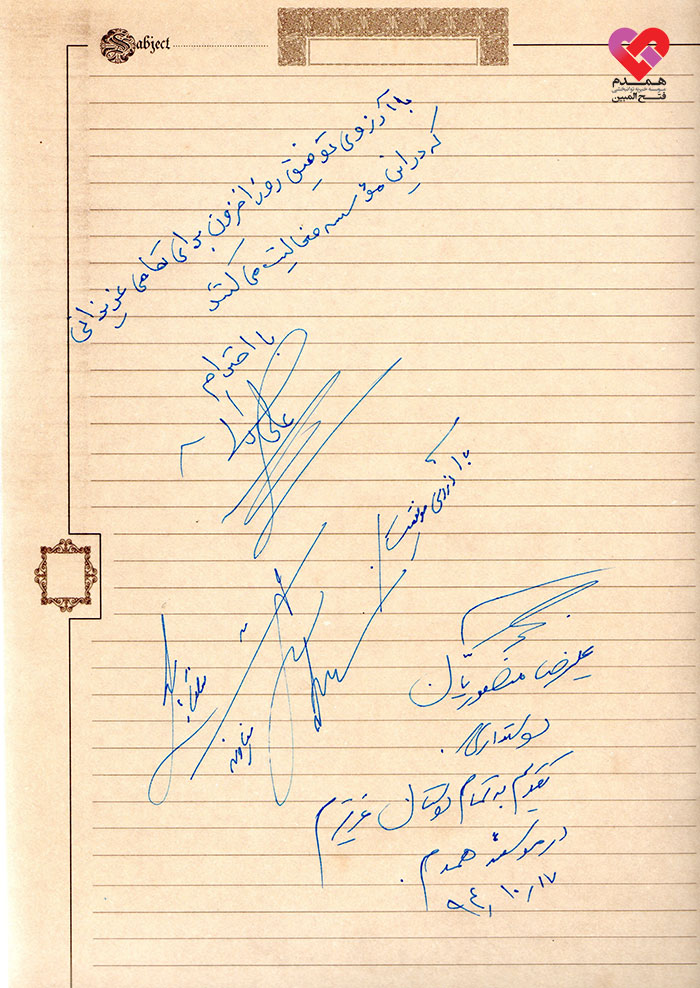 Sabject
همدم
موسسه خیریه توانبخشی
فتح المبین
با آرزوی توفیق روز افزون برای تمامی عزیزانی
که در این مؤسسه فعالیت می کنند
با احترام
علی
با آرزوی موفقیت
علیرضا منصوریان
دوستدار
تقدیم به تمام دوستان عزیزم
در موسسه همدم.
۹۴٫۱۰٫۱۷